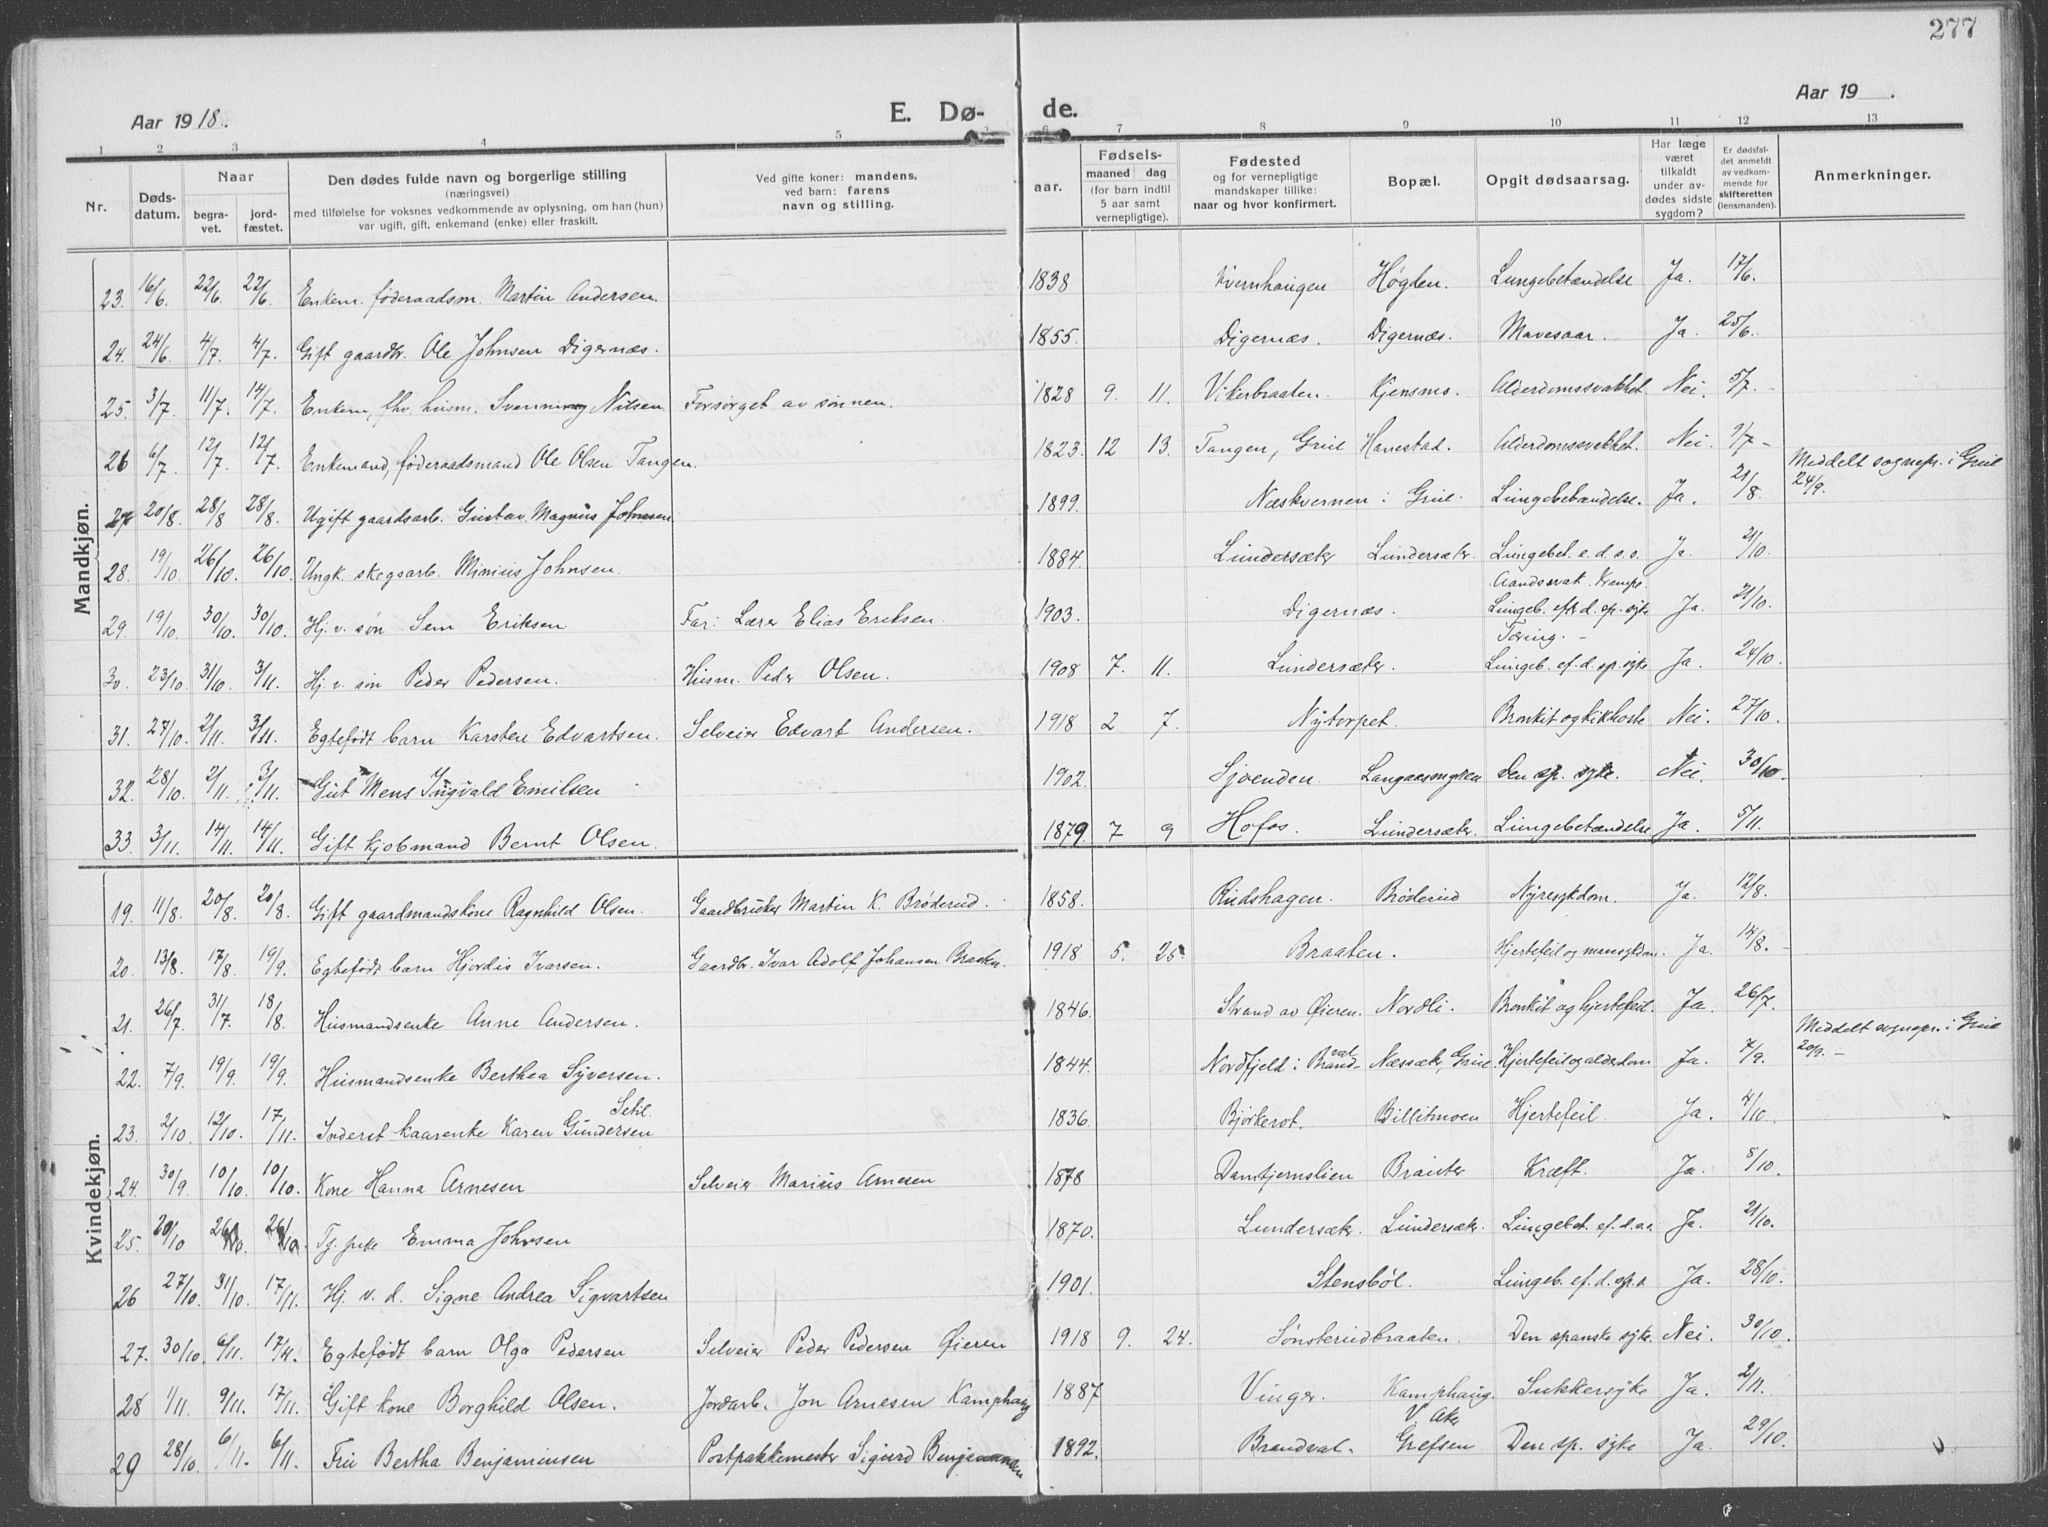 277
Aar 1918.
E. Dø-
de.
Aar 19 .
1 2 3 4 5 6 7 8 9 10 11 12 13
Nr.
Døds-
datum.
Naar
begra-
vet.
jord-
fæstet.
Den dødes fulde navn og borgerlige stilling
(næringsvei)
med tilføielse for voksnes vedkommende av oplysning, om han (hun)
var ugift, gift, enkemand (enke) eller fraskilt.
Ved gifte koner: mandens,
ved barn: farens
navn og stilling.
aar.
Fødsels-
maaned dag
(for barn indtil
5 aar samt
vernepligtige).
Fødested
og for vernepligtige
mandskaper tillike:
naar og hvor konfirmert.
Bopæl.
Opgit dødsaarsag.
Har læge
været
tilkaldt
under av-
dødes sidste
sygdom?
Er dødsfal-
det anmeldt
av vedkom-
mende for
skifteretten
(lensmanden).
Anmerkninger.
Mandkjøn.
23. 16/6. 22/6. 22/6. Enkem. føderaadsm. Martin Andersen. 1838 Kvernhaugen Høgden. Lungebetændelse Ja. 17/6.
24. 24/6 4/7. 4/7. Gift gaardbr. Ole Johnsen Digernæs. 1855. Digernæs. Digernæs. Mavesaar. Ja. 25/6.
25. 3/7. 11/7. 14/7. Enkem, fhv. husm. Svenning Nilsen Forsørget av sønnen. 1828 9. 11. Vikerbraaten. Kjensmo. Alderdomssvakhet Nei. 5/7.
26 6/7. 12/7. 12/7. Enkemand, føderaadsmand Ole Olsen Tangen. 1823. 12 13. Tangen, Grue Hanestad. Alderdomssvakhet. Nei. 9/7 -
27 20/8. 28/8 28/8. Ugift gaardsarb. Gustav Magnus Johnsen. 1899 Næskvernen i Grue. Lungebetændelse. Ja. 21/8. Meddelt sognepr. i Grue 24/9.
28. 19/10. 26/10. 26/10. Ungk. skogsarb. Minius Johnsen. 1884. Lundersæter Lundersæter. Lungebet. e. d. s. s. Ja. 21/10.
Aandssvak. Krampe.
29. 19/10. 30/10. 30/10. Hj. v. søn Sem Eriksen. Far: Lærer Elias Eriksen. 1903. Digernæs. Lungeb. eft. d. sp. syke Ja. 21/10.
Tæring. -
30. 23/10 31/10. 3/11. Hj. v. søn Peder Pedersen. Husm. Peder Olsen. 1908 7. 11. Lundersæter. Lungeb. ef. d. sp. syke Ja. 24/10.
31. 27/10. 2/11. 3/11. Egtefødt barn Karsten Edvartsen. Selveier Edvart Andersen. 1918 2 7. Nytorpet. Bronkit og kikhoste Nei. 27/10.
32. 28/10. 2/11. 3/11. Gut Mens Ingvald Emilsen 1902. Sjøenden. Den sp. syke. Nei. 30/10.
33. 3/11. 14/11. 14/11. Gift kjøbmand Bernt Olsen. 1879. 7 9 Hofos. Lundersæter. Lungebetændelse Ja. 5/11.
Kvindekjøn.
19. 11/8. 20/8. 20/8. Gift gaardmandskone Ragnhild Olsen. Gaardbruker Martin K. Brøderud. 1858. Rudshagen. Brøderud Nyresykdom. Ja. 12/8.
20. 13/8. 17/8. 19/9. Egtefødt barn Hjørdis Ivarsen. Gaardbr. Ivar Adolf Johansen Braaten. 1918 5. 25. Braaten. Hjertefeil og mavesykdom. Ja. 14/8. -
21. 26/7. 31/7. 18/8. Husmandsenke Anne Andersen. 1846. Strand av Øieren. Nordli. Bronkit og hjertefeil. Ja. 26/7.
22. 7/9. 19/9. 19/9. Husmandsenke Berthea Syversen. 1844. Nordfjeld i Brandval Næssæt, Grue. Hjertefeil og alderdom Ja. 7/9. Meddelt sognepr. i Grue 20/9. -
23. 2/10. 12/10. 17/11. Inderst kaarenke Karen Gundersen 1836. Bjørkerot. Billitmoen Hjertefeil Ja. 4/10.
24. 30/9. 10/10. 10/10. Kone Hanna Arnesen Selveier Marius Arnesen 1878 Damtjernslien Brauter Kræft. Ja. 5/10.
25. 20/10 26/10. 26/10. Tj. pike Emma Johnsen 1870. Lundersæter. Lundersæter. Lungebet. ef. d. s.s. Ja. 21/10.
26 27/10. 31/10. 17/11. Hj. v. d. Signe Andrea Sigvartsen 1901. Stensbøl. Lungeb. ef. d. sp. s Ja. 28/10.
27. 30/10. 6/11. 17/11. Egtefødt barn Olga Pedersen Selveier Peder Pedersen Øieren 1918 9. 24. Sønsterudbraaten. Den spanske syke. Nei. 30/10.
28 1/11. 9/11. 17/11. Gift kone Borghild Olsen. Jordarb. Jon Arnesen Kamphaug 1887 Vinger. Kamphaug. Sukkersyke Ja. 2/11.
29 28/10. 6/11. 6/11. Fru Bertha Benjaminsen Postpakkemester Sigurd Benjaminsen 1892. Brandval. V. Aker Grefsen Den sp. syke Ja. 29/10.